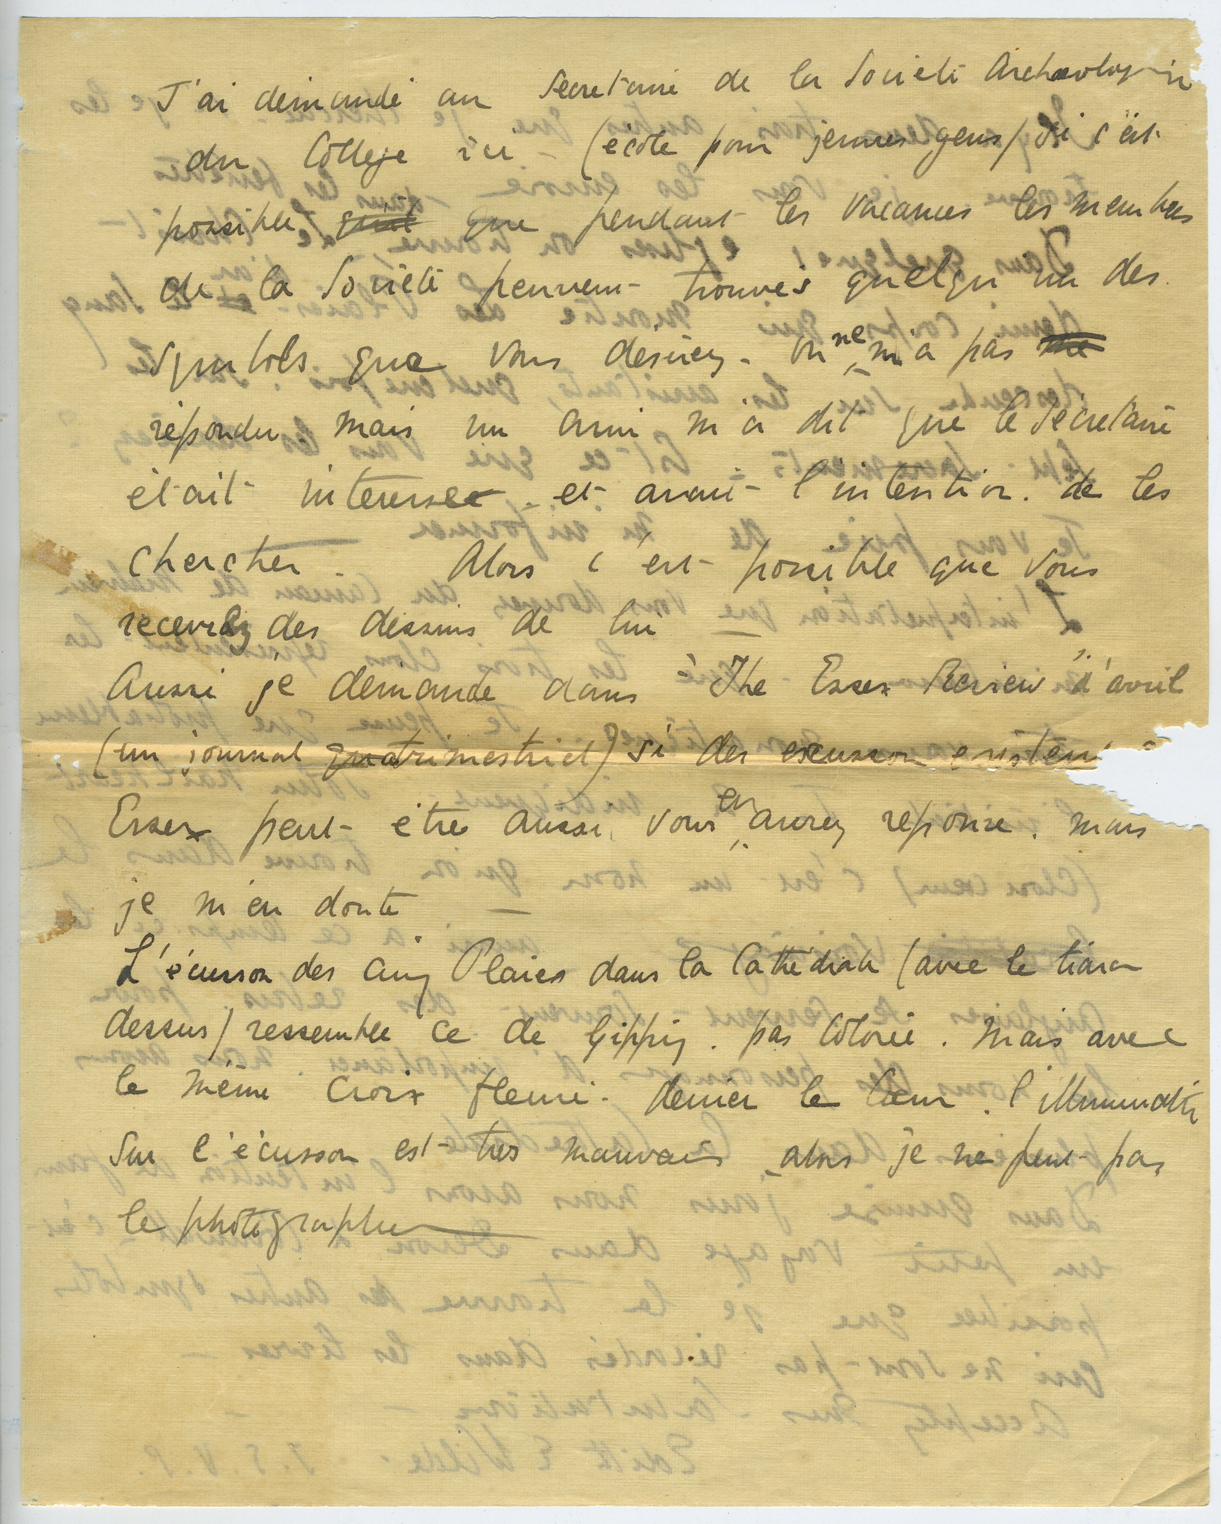 J'ai demandé au Secretaire de la Societé Archaeologi
du College ici (école pour jeunes gens) si c'est
possible que pendant les vacances les membres
de la Societé peuvent trouver quelqu'un des
symbols que vous desirez. On ne m'a pas
repondu mais un ami m'a dit que le Secretaire
était interessé et avait l'intention de les
chercher. Alors c'est possible que vous
recevrez des dessins de lui —
Aussi je demande dans "The Essex Review" d'avril
(un journal quatrimestriel) si des ecusson existent à
Essex peut-être aussi vous en aurez reponse. mais
je m'en doute —
L'écusson des Cinq Plaies dans la Cathédrale (avec le tiara
dessus) ressemble ce de Gipping. pas colorié. Mais avec
le même Croix fleuri. derrier le Cœur. l'illumination
sur l'écusson est très mauvais alors je ne peut pas
le photographier